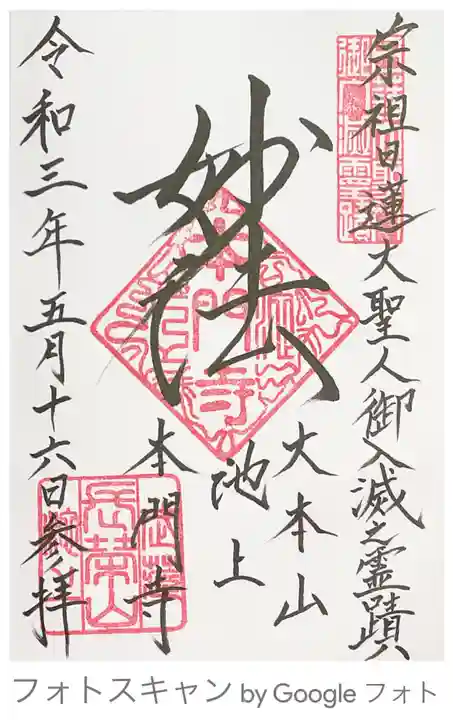 宗祖日蓮大聖人御入滅之霊蹟
妙法
大本山
池上
本門寺
令和三年五月十六日参拝
本門寺
長栄山
フォトスキャン by Google フォト